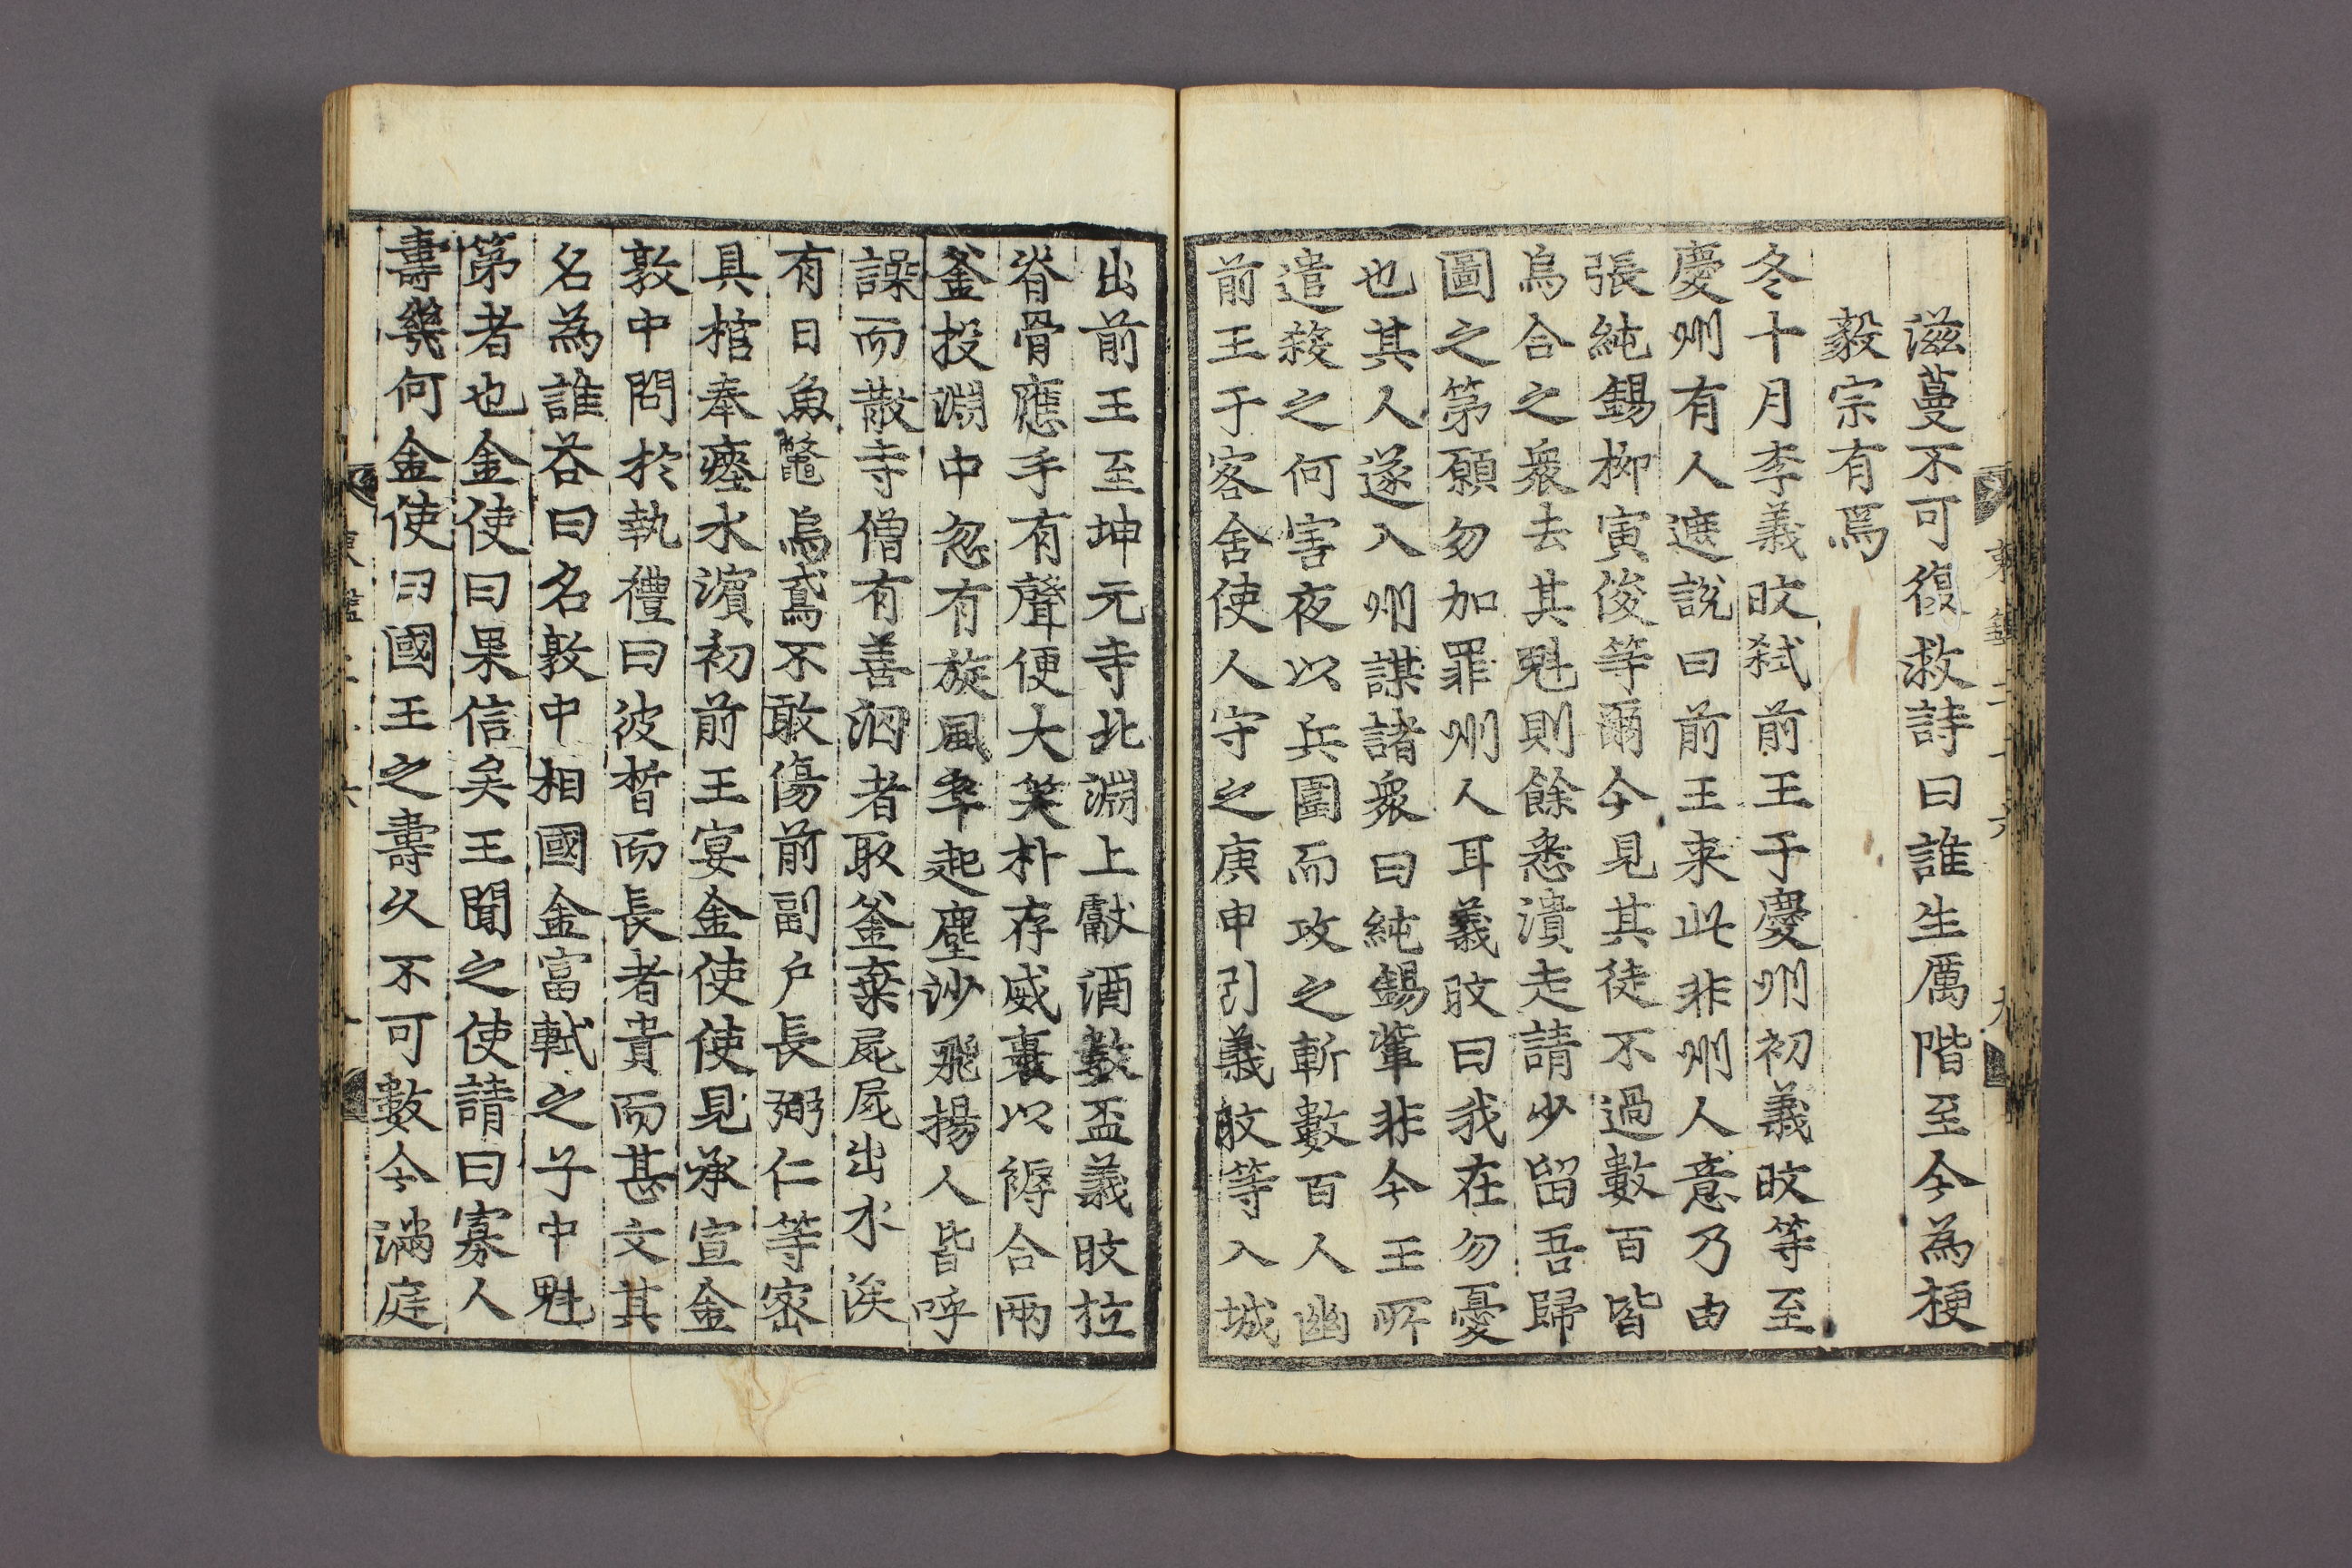 滋蔓不可復救詩曰誰生厲階至今為梗
毅宗有焉
冬十月李義旼弑前王于慶州初義旼等至
慶州有人遮說曰前王来此非州人意乃由
張純錫柳寅俊等爾今見其徒不過數百皆
烏合之衆去其魁則餘悉潰走請少留吾歸
圖之第願勿加罪州人耳義旼曰我在勿憂
也其人遂入州謀諸衆曰純錫軰非今王所
遣殺之何害夜以兵圍而攻之斬數百人幽
前王于客舍使人守之庚申引義旼等入城
出前王至坤元寺北淵上獻酒數盃義旼拉
脊骨應手有聲便大笑朴存威裹以褥合兩
釜投淵中忽有旋風卒起塵沙飛揚人皆呼
譟而散寺僧有善泅者取釜棄屍屍出水涘
有日魚鼈烏鳶不敢傷前副户長弼仁等宻
具棺奉瘞水濵初前王宴金使使見承宣金
敦中問於執禮曰彼皙而長者貴而甚文其
名為誰荅曰名敦中相國金富軾之子中魁
第者也金使曰果信矣王聞之使請曰寡人
壽幾何金使曰國王之壽久不可數今滿庭
東鑑二十六 九